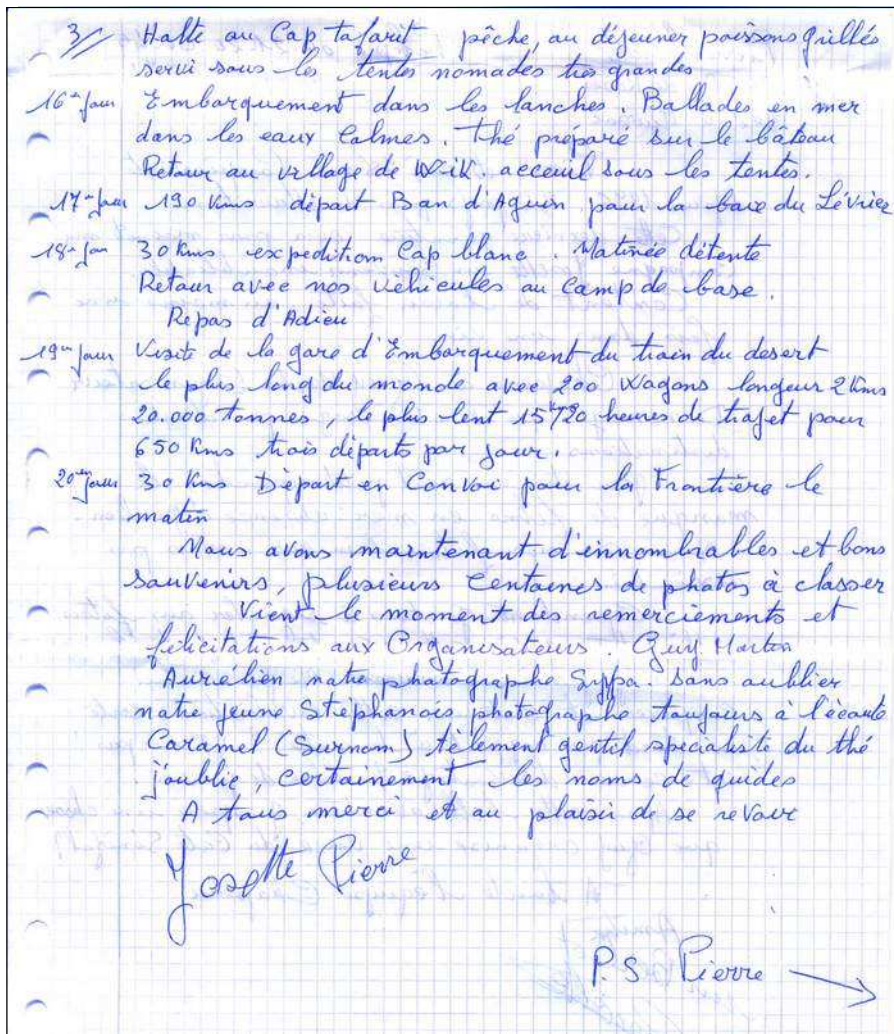 3// Halte au Cap tafarit pêche, au déjeuner poissons grillés
servi sous les tentes nomades tres grandes
16e jour Embarquement dans les lanches. Ballades en mer
dans les eaux Calmes. thé préparé sur le bâteau
Retour au village de WiK. acceuil sous les tentes.
17e jour 190 Kms départ Ban d'Aguin pour la baie du Lévrier
18e jour 30 Kms expedition Cap blanc. Matinée détente
Retour avec nos véhicules au Camp de base.
Repas d'Adieu
19e jour Visite de la gare d'Embarquement du train du desert
le plus long du monde avec 200 Wagons longueur 2 Kms
20.000 tonnes, le plus lent 15 à 20 heures de trajet pour
650 Kms trois départs par jour.
20e jour 30 Kms Départ en Convoi pour la Frontière le
matin
Nous avons maintenant d'innombrables et bons
souvenirs, plusieurs Centaines de photos à classer
Vient le moment des remerciements et
félicitations aux Organisateurs. Guy. Martin
Aurélien notre photographe Syfpa. sans oublier
notre jeune Stéphanois photographe toujours à l'écoute
Caramel (Surnom) tèlement gentil specialiste du thé
j'oublie, certainement les noms de guides
A tous merci et au plaisir de se revoir
Josette Pierre
P.S. Pierre →